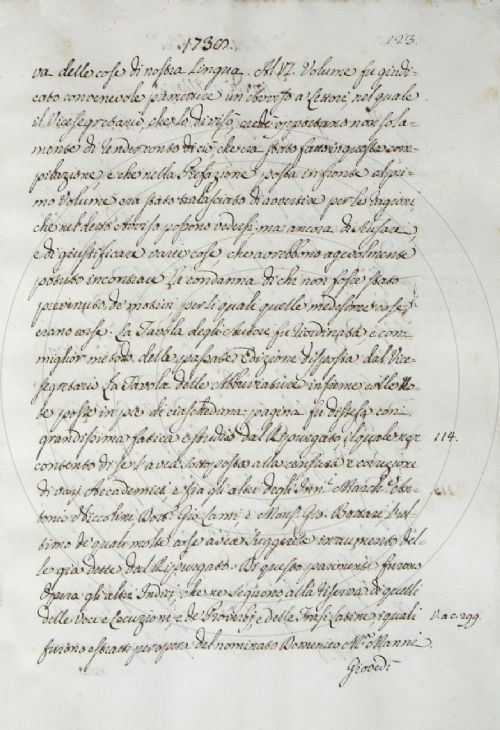 1738. 123.
va delle cose di nostra Lingua. Al VI. Volume fu giudi-
cato convenevole premettere un Avviso a' Lettori, nel quale
il Vicesegretario, che lo divisò, crede opportuno non sola-
mente di render conto di ciò che era stato fatto in questa com-
pilazione, e che nella Prefazione posta in fronte al pri-
mo Volume era stato tralasciato di avvertire per le ragioni,
che nel detto Avviso possono vedersi; ma ancora di scusare,
e di giustificare varie cose, che avrebbono agevolmente
potuto incontrare la condanna di chi non fosse stato
prevenuto de' motivi per li quali quelle medesime cose
erano corse. La Tavola degli Autori fu riordinata e con
miglior metodo della passata Edizione disposta dal Vice-
segretario. La Tavola delle Abbreviature insieme colle No-
te poste in piè di ciascheduna pagina fu distesa con
grandissima fatica e studio dal Ripurgato, il quale non 114.
contento di se l'avea sottoposta alla censura e correzione
di varj Accademici, e fra gli altri degli Inn.i March.e An-
tonio Niccolini, Dott. Gio. Lami, e Mons. Gio. Bottari, l'ul-
timo de' quali molte cose avea suggerite in aumento del-
le già dette dal Ripurgato. Di questo parimente furono
opera gli altri Indici, che ne seguono alla riserva di quelli
delle Voci e Locuzioni, e de' Proverbj, e delle Frasi Latine, i quali V. a c. 299.
furono estratti per opera del nominato Domenico M.a Manni.
Giovedì